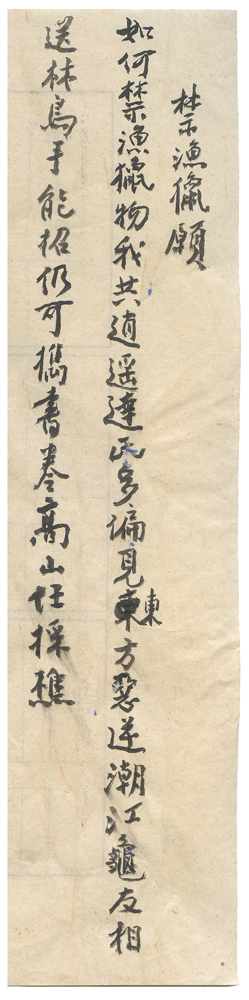 禁漁獵願
如何禁漁獵物我共逍遥達氏多偏見東方惡逆潮江龜友相
送林鳥手能招仍可擕書卷高山任採樵